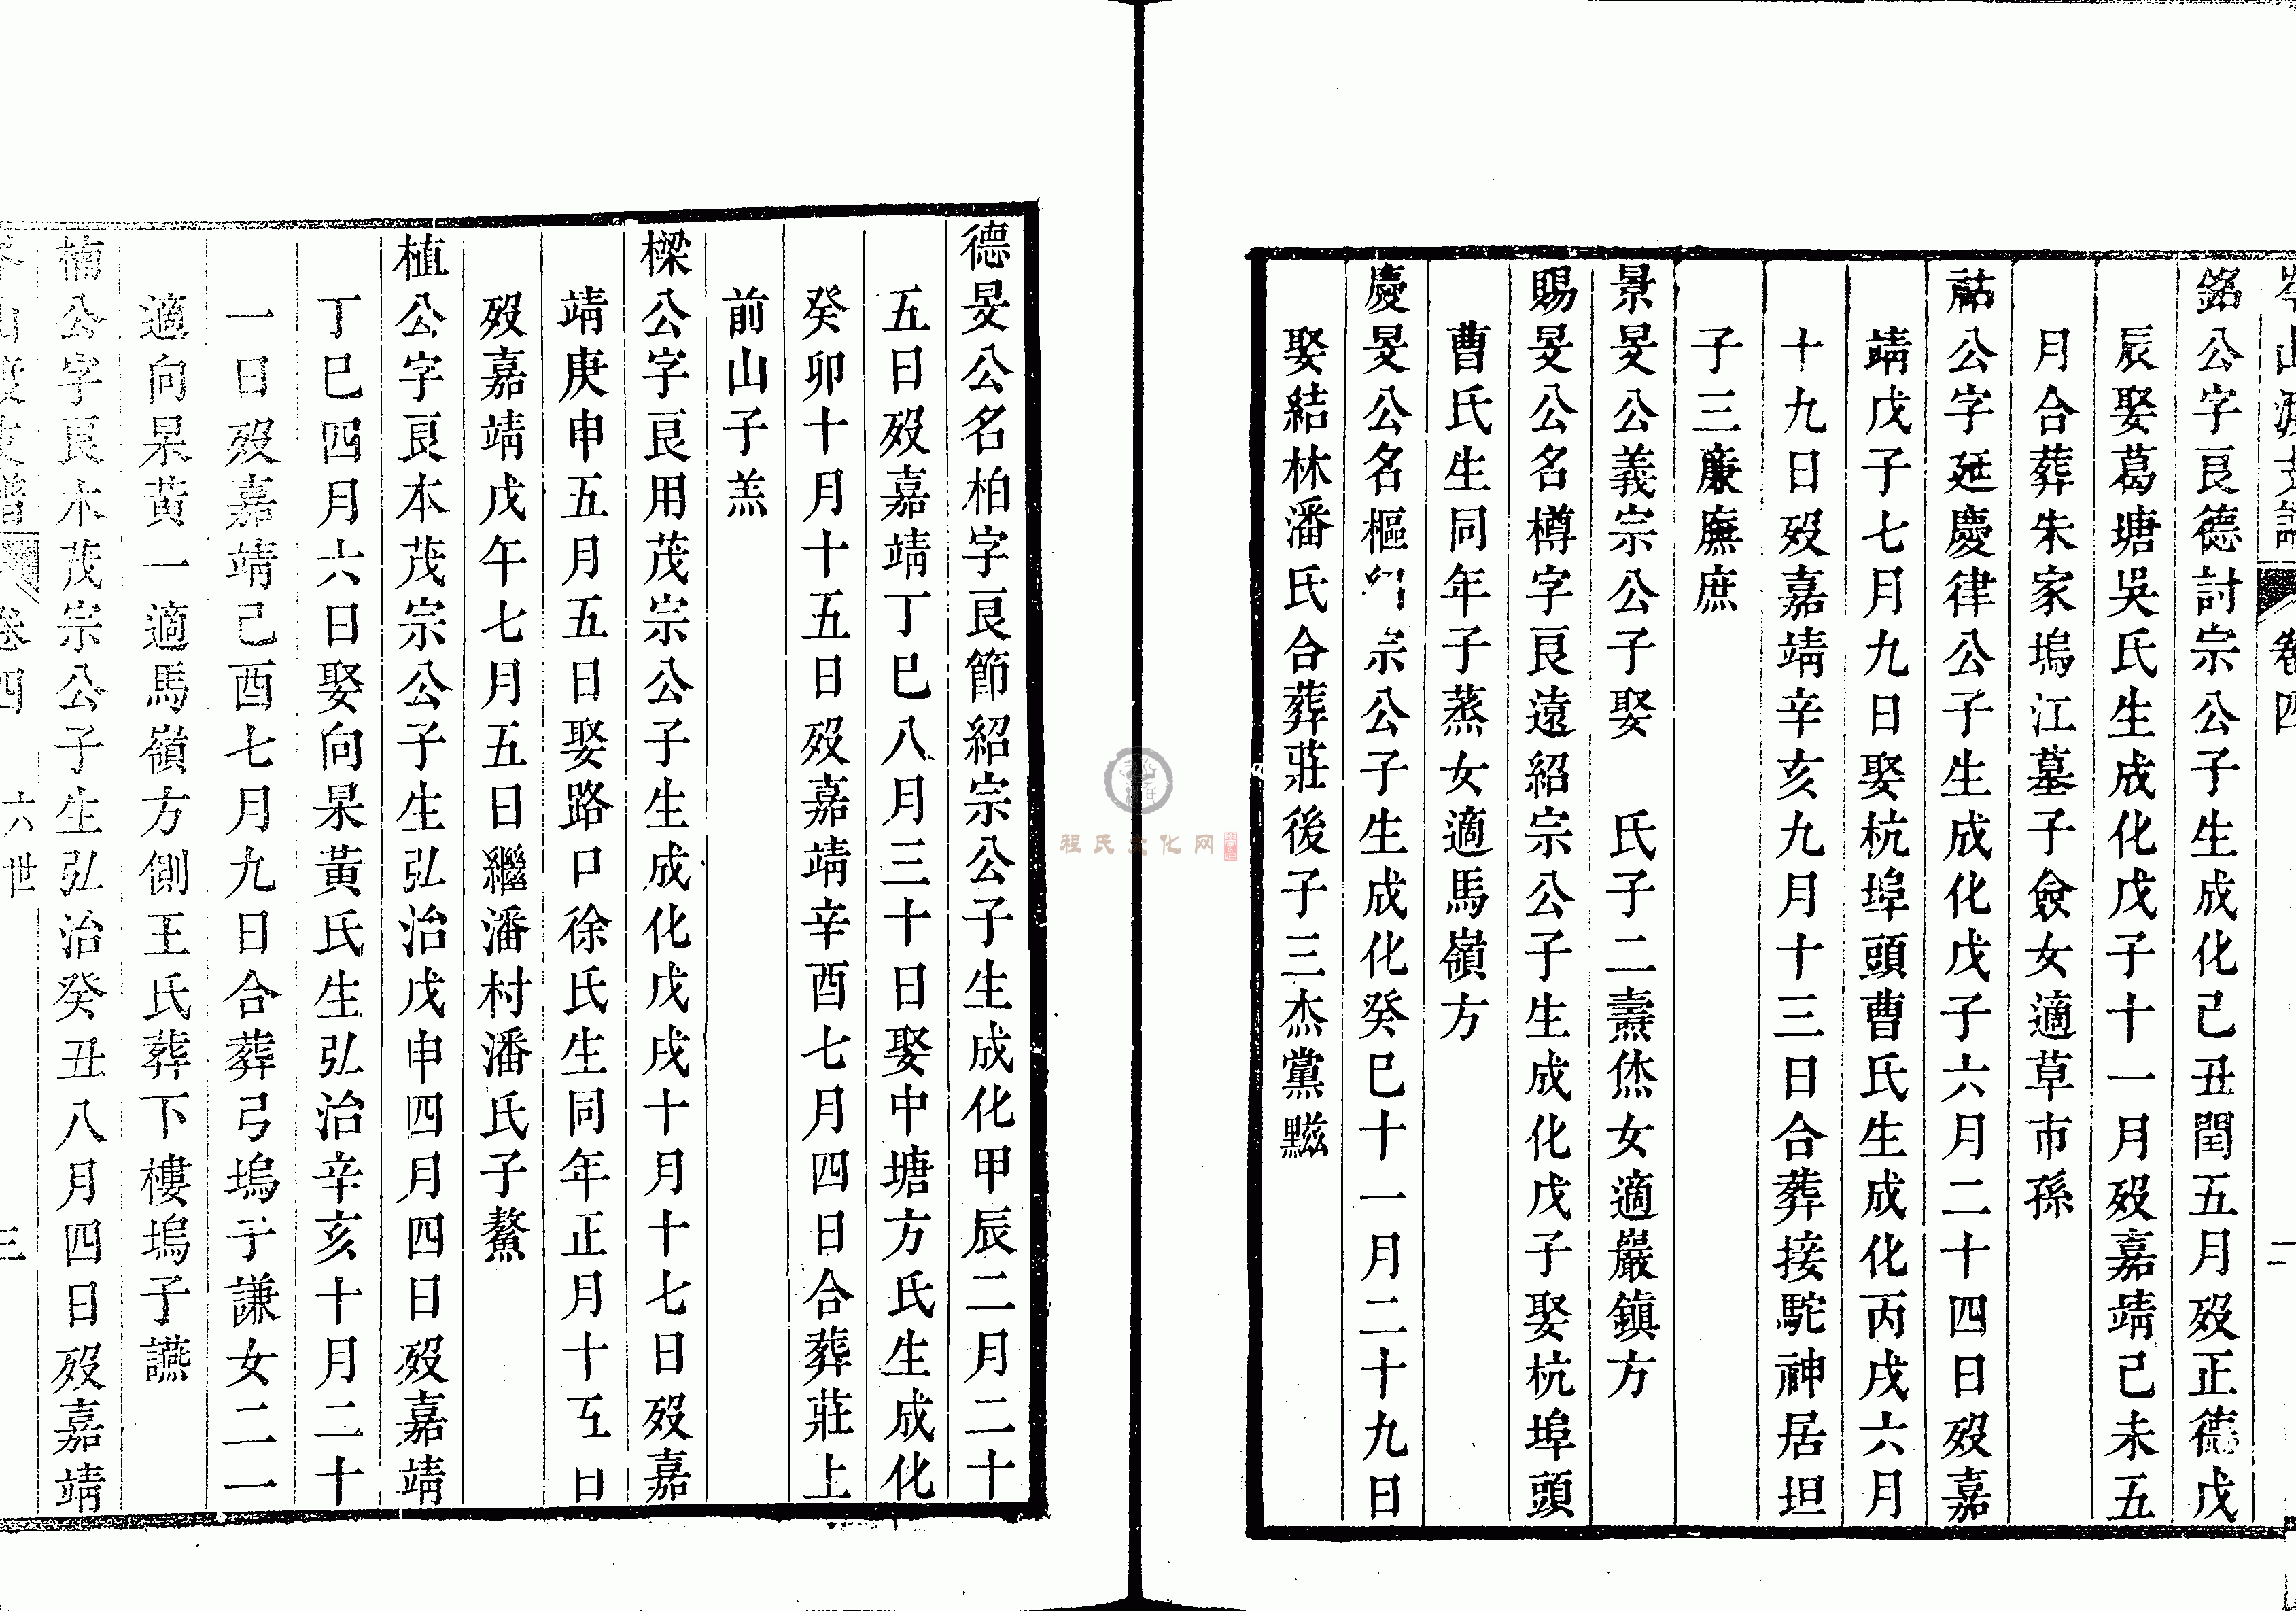 岑山渡支譜 卷四 二
銘公字艮德討宗公子生成化己丑閏五月歿正德戊
辰娶葛塘吳氏生成化戊子十一月歿嘉靖己未五
月合葬朱家塢江墓子僉女適草市孫
祜公字延慶律公子生成化戊子六月二十四日歿嘉
靖戊子七月九日娶杭埠頭曹氏生成化丙戌六月
十九日歿嘉靖辛亥九月十三日合葬接駝神居坦
子三廉廡庶
景旻公義宗公子娶 氏子二燾烋女適嚴鎮方
賜旻公名樽字艮遠紹宗公子生成化戊子娶杭埠頭
曹氏生同年子蒸女適馬嶺方
慶旻公名樞 宗公子生成化癸巳十一月二十九日
娶結林潘氏合葬莊後子三杰黨黰
德旻公名柏字艮節紹宗公子生成化甲辰二月二十
五日歿嘉靖丁巳八月三十日娶中塘方氏生成化
癸卯十月十五日歿嘉靖辛酉七月四日合葬莊上
前山子羔
樑公字艮用茂宗公子生成化戊戌十月十七日歿嘉
靖庚申五月五日娶路口徐氏生同年正月十五日
歿嘉靖戊午七月五日繼潘村潘氏子鰲
植公字艮本茂宗公子生弘治戊申四月四日歿嘉靖
丁巳四月六日娶向杲黃氏生弘治辛亥十月二十
一日歿嘉靖己酉七月九日合葬弓塢子謙女二一
適向杲黃一適馬嶺方側王氏葬下樓塢子讌
楠公字艮木茂宗公子生弘治癸丑八月四日歿嘉靖
岑山渡支譜 卷四 六世 三
程氏文化网